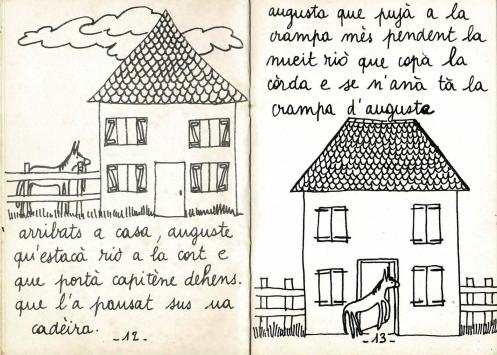 arribats a casa, auguste
qu'estacà riò a la cort e
que portà capitène dehens.
que l'a pausat sus ua
cadèira.
-12-
augusta que pujà a la
crampa mès pendent la
nueit riò que copà la
còrda e se n'anà tà la
crampa d'augusta
-13-